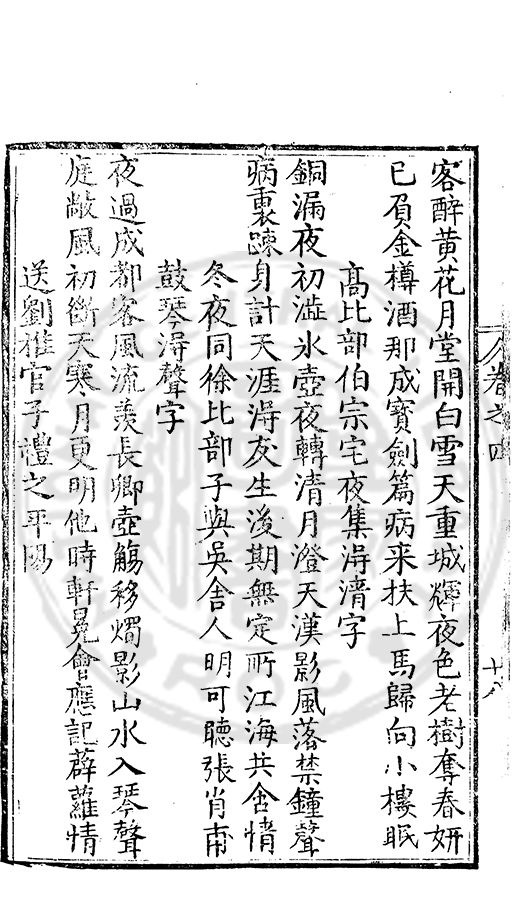 卷之四
十八
客醉黃花月堂開白雪天重城輝夜色老樹奪春妍
已負金樽酒那成寶劍篇病来扶上馬歸向小樓眠
髙比部伯宗宅夜集淂清字
銅漏夜初澁氷壺夜轉清月澄天漢影風落禁鐘聲
病裏踈身計天涯淂友生後期無定所江海共含情
冬夜同徐比部子與吳舍人明可聽張肖甫
鼓琴淂聲字
夜過成都客風流羨長卿壺觴移燭影山水入琴聲
庭敞風初斷天寒月更明他時軒冕會應記薜蘿情
送劉推官子禮之平陽